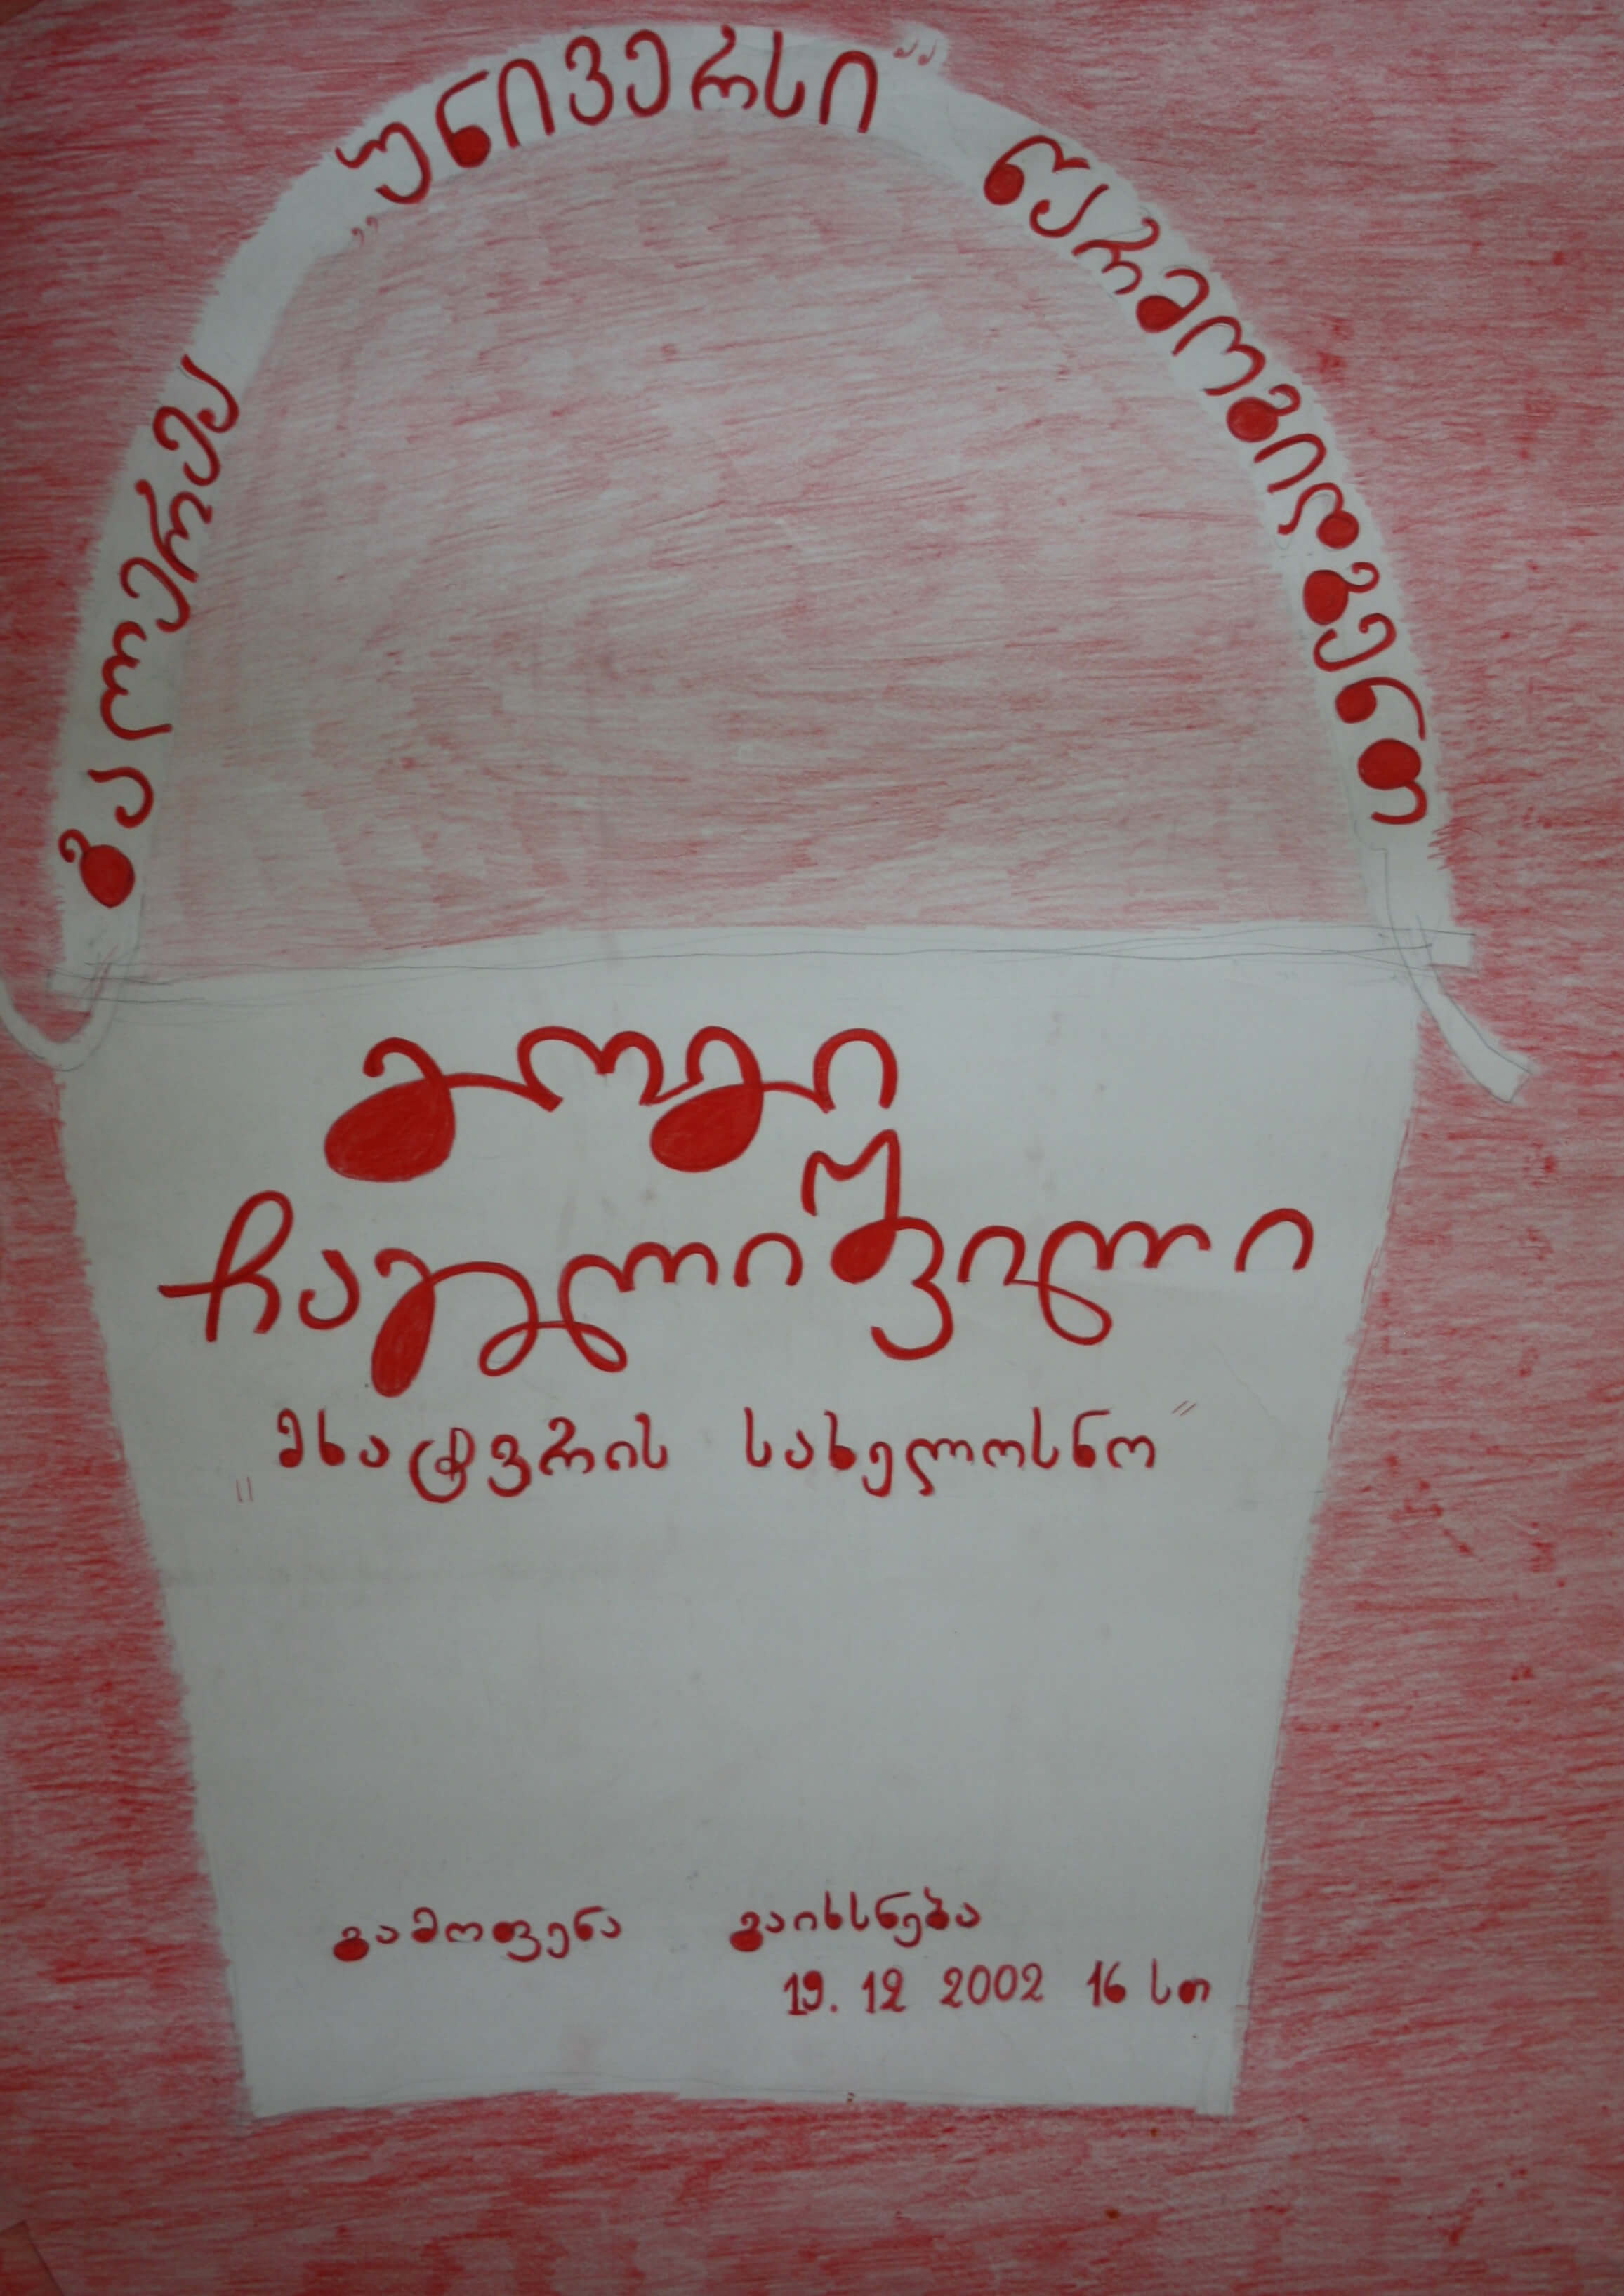 გალერეა „უნივერსი” წარმოგიდგენთ
გოგი
ჩაგელიშვილი
"მხატვრის სახელოსნო"
გამოფენა გაიხსნება
19. 12 2002 16 სთ